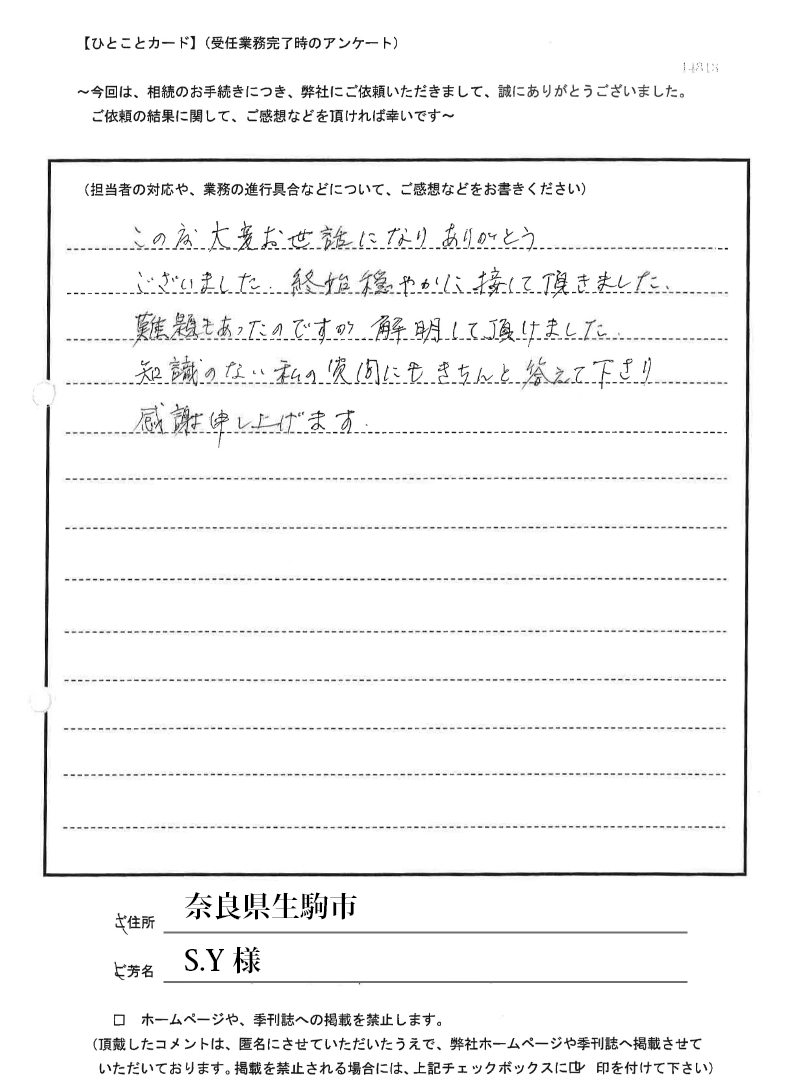 【ひとことカード】(受任業務完了時のアンケート)
～今回は、相続のお手続きにつき、弊社にご依頼いただきまして、誠にありがとうございました。
ご依頼の結果に関して、ご感想などを頂ければ幸いです～
(担当者の対応や、業務の進行具合などについて、ご感想などをお書きください)
この度 大変お世話になり ありがとう
ございました. 終始穏やかに接して頂きました、
難題もあったのですが 解明して頂けました.
知識のない私の質問にも きちんと答えて下さり
感謝申し上げます.
ご住所 奈良県生駒市
ご芳名 S.Y 様
□ ホームページや、季刊誌への掲載を禁止します。
(頂戴したコメントは、匿名にさせていただいたうえで、弊社ホームページや季刊誌へ掲載させて
いただいております。掲載を禁止される場合には、上記チェックボックスに☑ 印を付けて下さい)